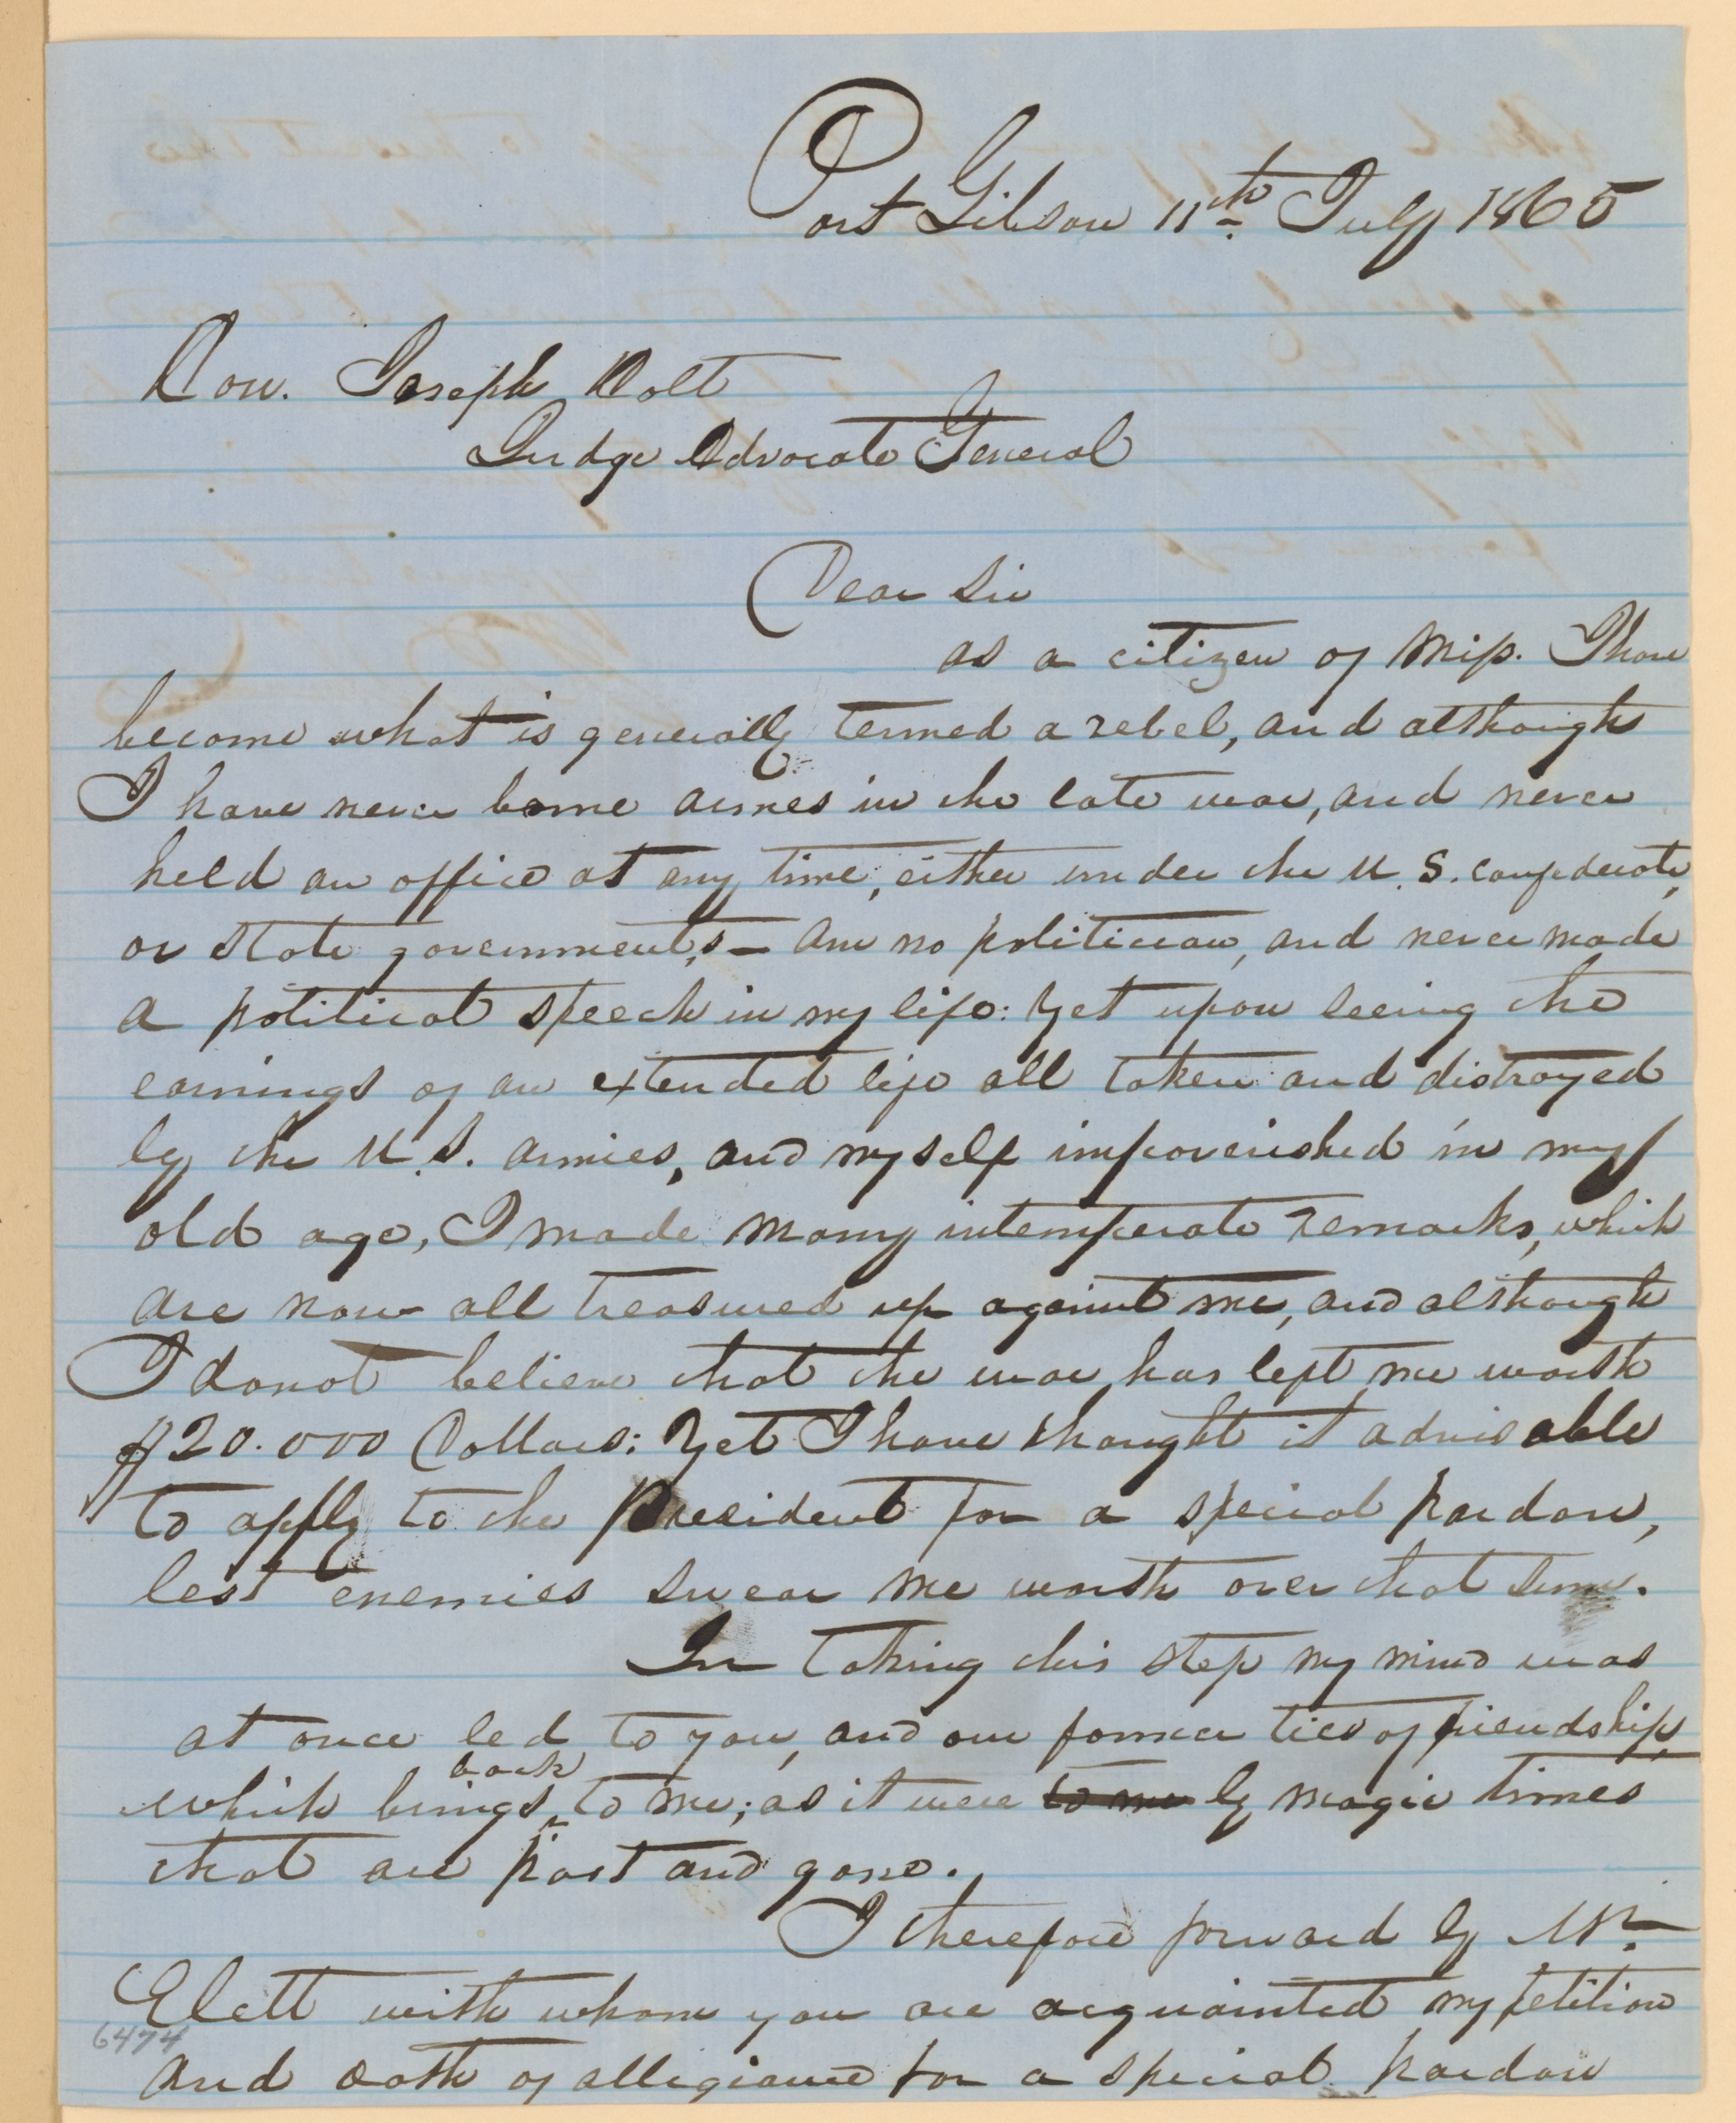 Port Gibson 11th July 1865
Hon. Joseph Holt
Judge Advocate General
Dear Sir
as a citizen of Miss. I have
become what is generally termed a rebel, and although
I have never borne armes in the late war, and never
held an office at any time, either under the U.S. confederate,
or State governments, – am no politician, and never made
a political speech in my life: Yet upon seeing the
earnings of an extended life all taken and distroyed
by the U.S. armies, and myself impoverished in my
old age, I made many intemperate remarks, which
are now all treasured up against me, and although
I do not believe that the war has left me worth
$20.000 Dollars: Yet I have thought it advisable
to apply to the President for a special pardon,
lest enemies swear me worth over that sum.
In taking this step my mind was
at once led to you, and our former ties of friendship,
back
which brings to me; as it were to me by magic times
that are past and gone.
I therefore forward by Mr.
Elett with whom you are acquainted my petition
and oath of allegiance for a special pardon
6474